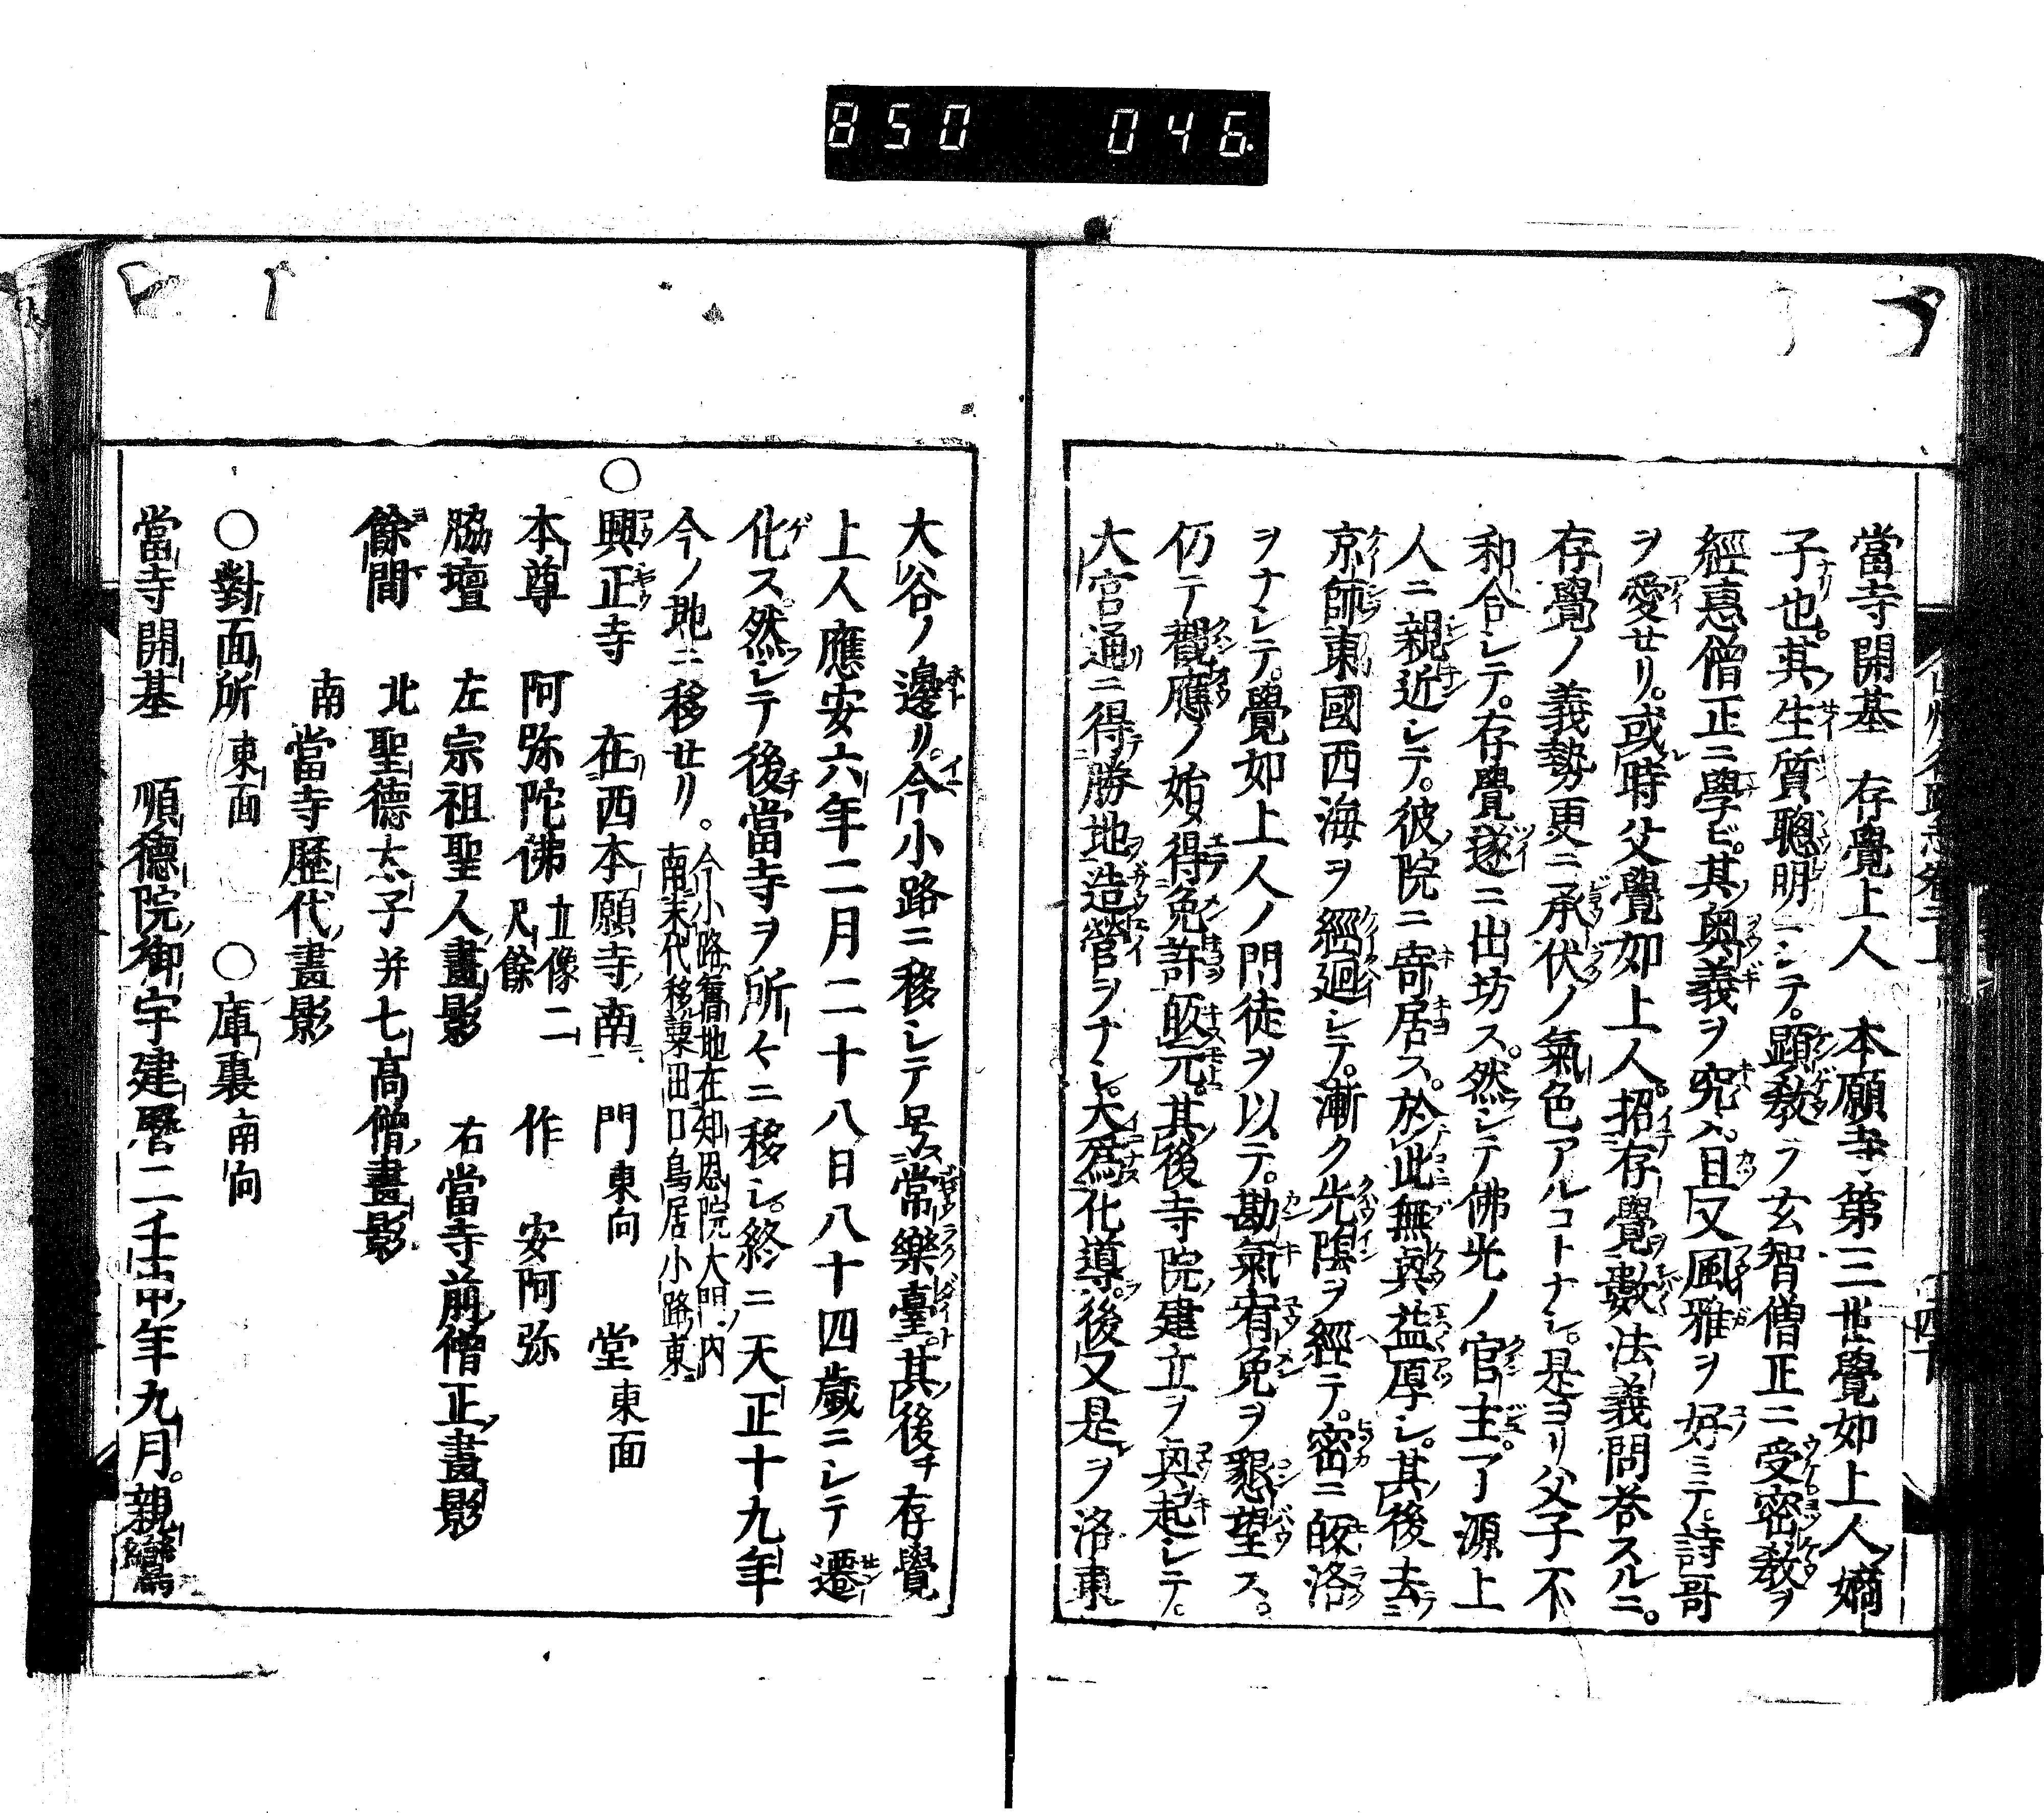 850 046
當寺開基 存覺上人 本願寺第三世覺如上人嫡
子也。其生質聰明ニシテ。顯教ヲ玄智僧正ニ受密教ヲ
經惠僧正ニ學ビ。其奥義ヲ究ム。且又風雅ヲ好ミテ詩哥
ヲ愛セリ。或時父覺如上人。招存覺數法義問答スルニ。
存覺ノ義勢更ニ承伏ノ氣色アルコトナシ。是ヨリ父子不
和合シテ。存覺遂ニ出坊ス。然シテ佛光ノ官主。了源上
人ニ親近シテ。彼院ニ寄居ス。於此無眞益厚シ。其後去テ
京師東國西海ヲ經廻シテ。漸ク光陰ヲ經テ。密ニ皈洛
ヲナシテ。覺如上人ノ門徒ヲ以テ。勘氣宥免ヲ懇望ス。
仍テ觀應ノ始メ得免許皈元。其後寺院建立ヲ興起シテ。
大宮通ニ得勝地造營ヲナシ。大爲化導。後又是ヲ洛東
大谷ノ邊リ。今小路ニ移シテ号ス常樂臺。其後チ存覺
上人應安六年二月二十八日八十四歳ニシテ遷
化ス。然シテ後當寺ヲ所々ニ移シ。終ニ天正十九年
今ノ地ニ移セリ。
今小路舊地在知恩院大門ノ内
南末代移粟田口鳥居小路東
○興正寺 在西本願寺南 門東向 堂東面
本尊 阿弥陀佛 立像二尺餘 作 安阿弥
脇壇 左宗祖聖人畫影 右當寺前僧正畫影
餘間 北聖德太子并七高僧畫影
南當寺歷代畫影
○對面所東面 ○庫裏南向
當寺開基 順德院御宇建曆二壬申年九月。親鸞